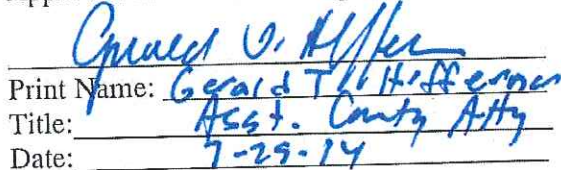 Gerald
Print Name: Gerald T. Heffernan
Title: Asst. County Atty
Date: 7-29-14